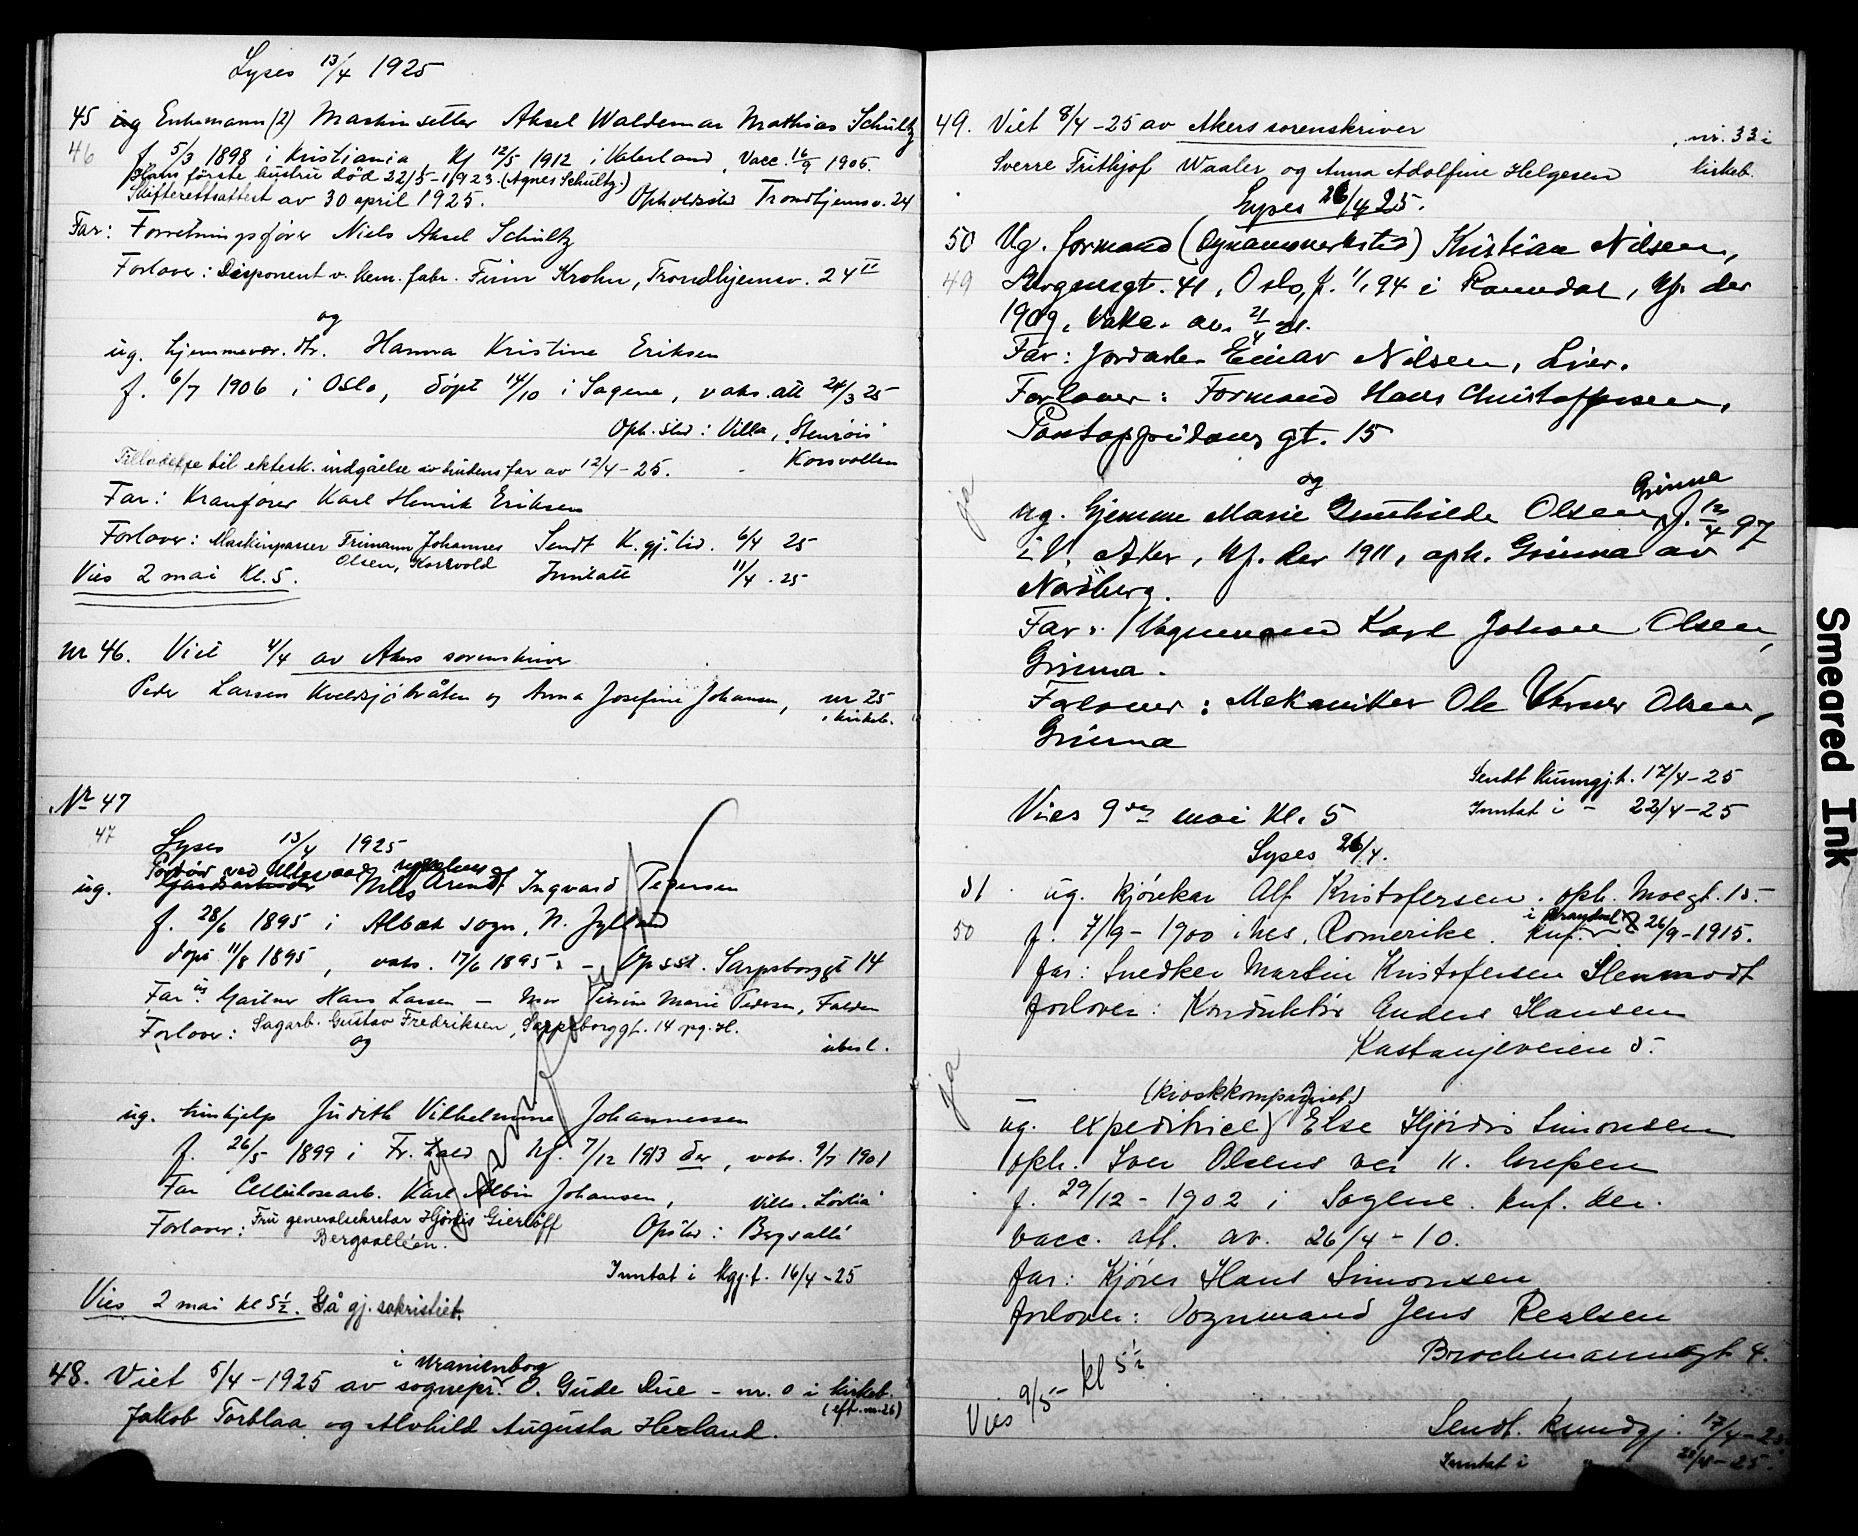 Lyses 13/4 1925
45 ug Enkemann (2) Maskinsetter Aksel Waldemar Mathias Schultz
46 f. 5/3 1898 i Kristiania, Kf 12/5 1912 i Vaterland, Vacc. 16/9 1905.
Hans første hustru død 22/5-1923. (Agnes Schultz.)
Skifterettsattest av 30 april 1925. Opholdssted Trondhjemsv. 24
Far: Forretningsfører Niels Aksel Schultz
Forlover: Disponent v. kem. fabr. Finn Krohn, Trondhjemsv. 24 II
og
ug. hjemmevær. dtr. Hanna Kristine Eriksen
f. 6/7 1906 i Oslo, døpt 14/10 i Sagene, vaks. att 24/3 25
Oph. sted: Villa "Stenrøis"
Korsvollen
Tilladelse til ektesk. indgåelse av brudens far av 12/4-25.
Far: Kranfører Karl Henrik Eriksen
Forlover: Maskinpasser Frimann Johannes Sendt K. gj. tid. 6/4 25
Olsen, Korsvold
Vies 2 mai Kl. 5. Inntatt 11/4 . 25
nr 46. Viet 4/4 av Akers sorenskriver
Peder Larsen Kveldsjøbråten og Anna Josefine Johansen, nr 25
i kirkeb.
Nr 47
47
Lyses 13/4 1925
ug. Gårdsarbeider Nils Arendt Ingvard Pedersen
f. 28/6 1895 i Albæk sogn, N. Jylland
døpt 11/8 1895, vaks. 17/6 1895. - Op.sst. Sarpsborggt 14
Far: Gartner Hans Larsen - Mor Petrine Marie Pedersen, Falden
Forlover: Sagarb. Gustav Fredriksen, Sarpsborggt. 14
og
ubesl.
ug. hushjelp Judith Vilhelmine Johannessen
f. 26/5 1899 i Fr.hald Kf. 7/12 1913 der, vaks. 9/7 1901
Far Cellulosearb. Karl Albin Johansen,
Forlover: Fru generalsekretær Hjørdis Gierløff
Bergsalléen. Opsted: Bergsallé
Inntat i kgj.t. 16/4-25
Vies 2 mai kl 5½. Gå gj. sakristiet.
i Uranienborg
48. Viet 5/4-1925 av sognepr. O. Gude Due - nr. 0 i kirkeb.
(eft. nr. 26)
Jakob Torblaa og Alvhild Augusta Herland.
49. Viet 8/4-25 av Akers sorenskriver nr. 33 i
Sverre Frithjof Waaler og Anna Adolfine Helgesen kirkeb.
Lyses 26/4 25.
50 Ug. formand (Dynamoverksted) Kristian Nilsen,
49 Bergensgt. 41, Oslo, f. 1/1 94 i Ramndal, Kf. der
1909, Vakc. av. 21/4
Far: Jordarb. Einar Nilsen, Lier.
Forlover: Formand Hans Christoffersen,
Pontoppidans gt. 15
og
ja
ug. hjemme Marie Gunhilde Olsen, Grinna f. 12/4 97
i V. Aker, Kf. der 1911, oph. Grinna av
Nordberg.
Far: Vognmand Karl Johan Olsen,
Grinna.
Forlover: Mekaniker Ole Verner Olsen,
Grinna
Sendt kunngj.t. 17/4-25
Vies 9de mai kl. 5 Inntat i - 22/4-25
Lyses 26/4.
51 ug. kjørekar Alf Kristofersen. oph. Moegt. 15.
50 f. 7/9-1900 i Nes, Romerike. Knf. 26/9-1915.
far: Snedker Martin Kristofersen Stenmodt
forlover: Konduktør Anders Hansen
Kastanjeveien 5.
ja
(kioskkompagniet)
ug. expeditrice Else Hjørdis Simonsen
oph. Iver Olsens vei 11. Grefsen
f. 29/12-1902 i Sagene. knf. der.
vacc. att. av. 26/4-10.
far: Kjører Hans Simonsen
forlover: Vognmand Jens Realsen
Brochmannsgt. 4.
Vies 9/5 kl 5½
Sendt. kundgj. 17/4-25
Inntat i " 22/4-25.
Smeared Ink